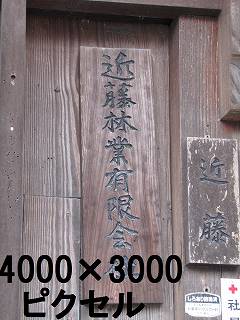 近藤林業有限会社
近藤
4000×3000
ピクセル
しろあり防除済
社